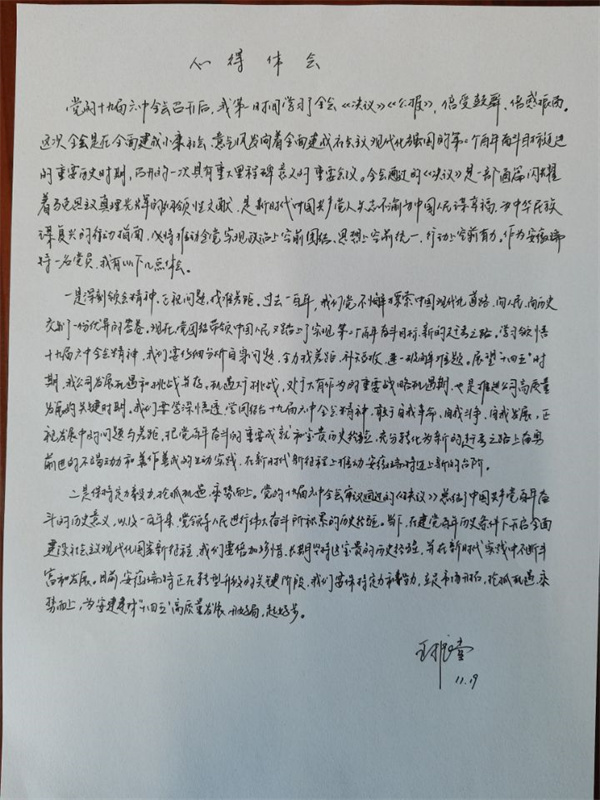 心得体会
党的十九届六中全会召开后，我第一时间学习了全会《决议》《公报》，倍受鼓舞、倍感振奋。
这次全会是在全面建成小康社会、意气风发向着全面建成社会主义现代化强国的第二个百年奋斗目标迈进
的重要历史时期，召开的一次具有重大里程碑意义的重要会议。全会通过的《决议》是一部通篇闪耀
着马克思主义真理光辉的纲领性文献，是新时代中国共产党人矢志不渝为中国人民谋幸福、为中华民族
谋复兴的行动指南，必将推动全党实现政治上空前团结、思想上空前统一、行动上空前有力。作为安徽
一名党员，我有以下几点体会。
一是深刻领会精神，正视问题，找准差距。过去一百年，我们党不懈探索中国现代化道路，向人民、向历史
交了一份优异的答卷。现在，党团结带领中国人民又踏上了实现第二个百年奋斗目标新的赶考之路。学习领悟
十九届六中全会精神，我们要仔细分析自身问题、全力找差距、补短板、逐一破解难题。展望“十四五”时
期，我公司发展机遇和挑战并存，机遇大于挑战，处于大有作为的重要战略机遇期，也是推进公司高质量
发展的关键时期。我们要学深悟透，党的十九届六中全会精神，敢于自我革命、自我斗争、自我发展，正
视发展中的问题与差距，把党百年奋斗的重要成就和宝贵历史经验，充分转化为新的赶考之路上奋勇
前进的不竭动力和善作善成的生动实践，在新时代新征程上推动安徽迈上新的台阶。
二是保持定力毅力，抢抓机遇，乘势而上。党的十九届六中全会审议通过的《决议》总结了中国共产党百年奋
斗的历史意义，以及一百年来，党领导人民进行伟大奋斗所积累的历史经验。当下，在建党百年历史条件下开启全面
建设社会主义现代化国家新征程，我们要倍加珍惜、长期坚持这宝贵的历史经验，并在新时代实践中不断丰
富和发展。目前，安徽正在转型升级的关键阶段，我们要保持定力和毅力，立足市场开拓，抢抓机遇，乘
势而上，为安建建材“十四五”高质量发展开好局，起好步。
11.19